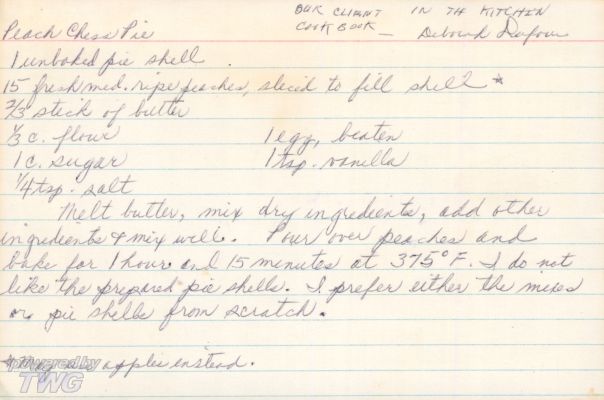 OUR CLIENT IN TH KITCHEN
COOK BOOK — Deborah Dufour
Peach Chess Pie
1 unbaked pie shell.
15 fresh med. ripe peaches, sliced to fill shell *
2/3 stick of butter
1/3 c. flour 1 egg, beaten
1 c. sugar 1 tsp. vanilla
1/4 tsp. salt
Melt butter, mix dry ingredients, add other
ingredients & mix well. Pour over peaches and
bake for 1 hour and 15 minutes at 375° F. I do not
like the prepared pie shells. I prefer either the mixes
or pie shells from scratch.
* May use apples instead.
powered by
TWG